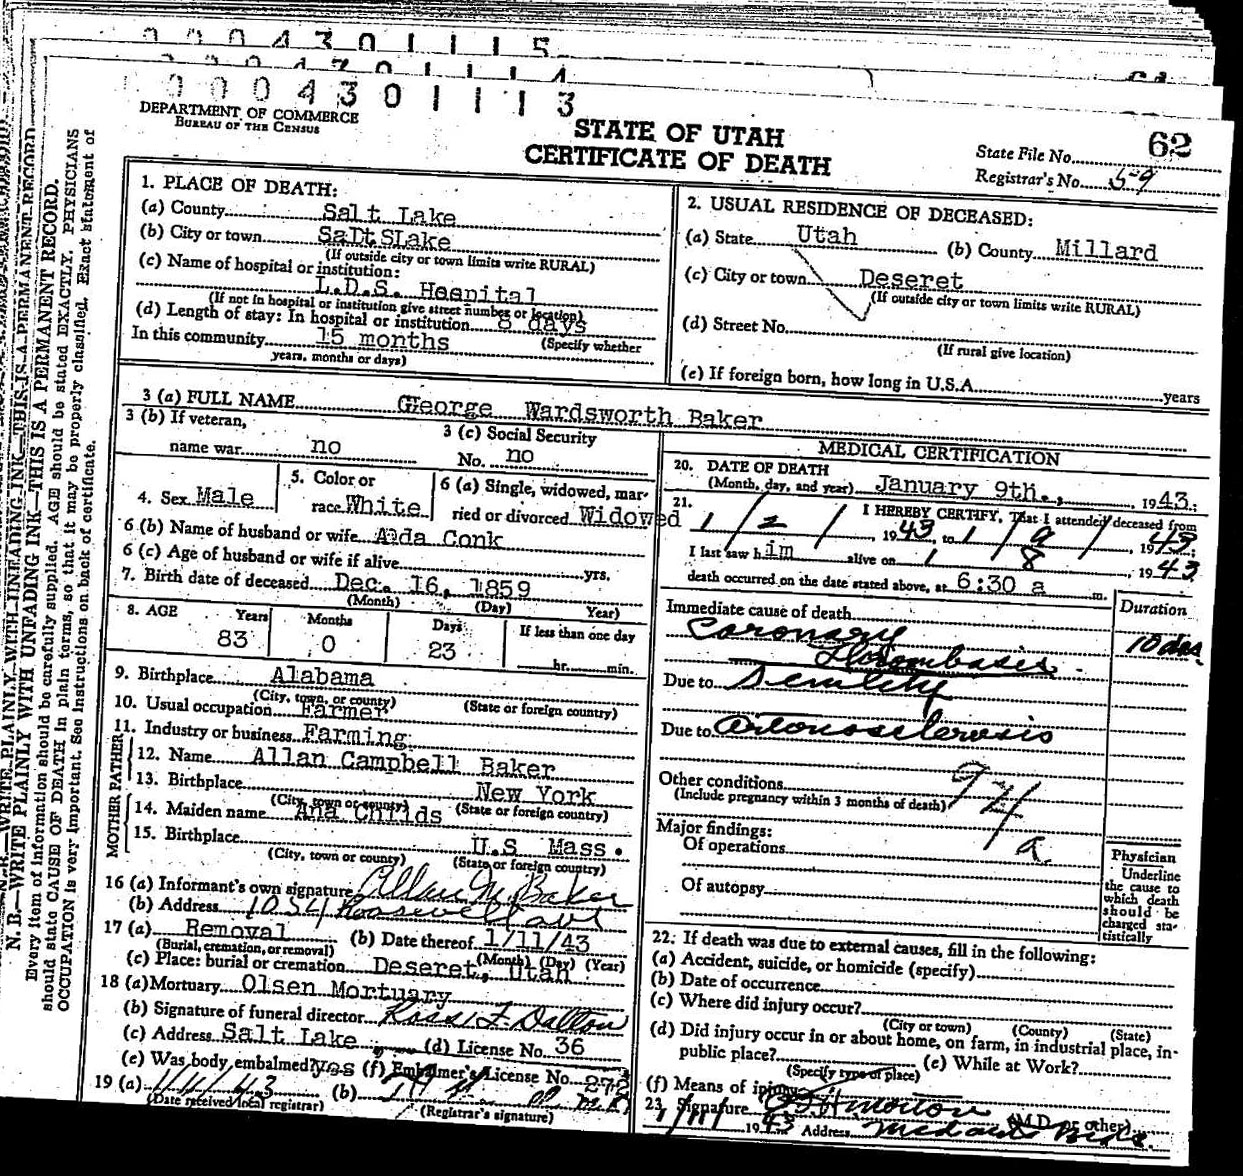 0004301115
000430111 4
0004301113
DEPARTMENT OF COMMERCE
BUREAU OF THE CENSUS
STATE OF UTAH
CERTIFICATE OF DEATH
62
State File No.
Registrar's No. 59
N. B.—WRITE PLAINLY WITH UNFADING INK—THIS IS A PERMANENT RECORD.
Every item of information should be carefully supplied. AGE should be stated EXACTLY. PHYSICIANS
should state CAUSE OF DEATH in plain terms, so that it may be properly classified. Exact statement of
OCCUPATION is very important. See instructions on back of certificate.
1. PLACE OF DEATH:
(a) County Salt Lake
(b) City or town Salt SLake
(If outside city or town limits write RURAL)
(c) Name of hospital or institution:
L.D.S. Hospital
(If not in hospital or institution give street number or location)
(d) Length of stay: In hospital or institution 8 days
(Specify whether
In this community 15 months
years, months or days)
2. USUAL RESIDENCE OF DECEASED:
(a) State Utah (b) County Millard
(c) City or town Deseret
(If outside city or town limits write RURAL)
(d) Street No.
(If rural give location)
(e) If foreign born, how long in U.S.A. years
3 (a) FULL NAME George Wardsworth Baker
3 (b) If veteran,
name war no
3 (c) Social Security
No. no
4. Sex Male
5. Color or
race White
6 (a) Single, widowed, mar-
ried or divorced Widowed
6 (b) Name of husband or wife Alda Conk
6 (c) Age of husband or wife if alive yrs.
7. Birth date of deceased Dec. 16, 1859
(Month) (Day) Year)
8. AGE Years Months Days If less than one day
83 0 23 hr. min.
9. Birthplace Alabama
(City, town, or county) (State or foreign country)
10. Usual occupation Farmer
11. Industry or business Farming
FATHER
12. Name Allan Campbell Baker
13. Birthplace New York
(City, town or county) (State or foreign country)
MOTHER
14. Maiden name Ana Childs
15. Birthplace U.S Mass.
(City, town or county) (State or foreign country)
16 (a) Informant's own signature Allan M. Baker
(b) Address 1034 Roosevelt ave
17 (a) Removal (b) Date thereof 1/11/43
(Burial, cremation, or removal) (Month) (Day) (Year)
(c) Place: burial or cremation Deseret, Utah
18 (a) Mortuary Olsen Mortuary
(b) Signature of funeral director Ross F Dalton
(c) Address Salt Lake (d) License No. 36
(e) Was body embalmed? Yes (f) Embalmer's License No. 272
19 (a) 1/11/43 (b)
(Date received local registrar) (Registrar's signature)
MEDICAL CERTIFICATION
20. DATE OF DEATH
(Month, day, and year) January 9th., 1943.:
21. I HEREBY CERTIFY, That I attended deceased from
1/2/, 1943, to 1/9/, 1943;
I last saw him alive on 1 8 1943
death occurred on the date stated above, at 6:30 a m.
Immediate cause of death Duration
Coronary 10 das
Thrombosis
Due to Senility
Due to Arteriosclerosis
Other conditions
(Include pregnancy within 3 months of death)
94
a
Major findings:
Of operations
Of autopsy
Physician
Underline
the cause to
which death
should be
charged sta-
tistically
22. If death was due to external causes, fill in the following:
(a) Accident, suicide, or homicide (specify)
(b) Date of occurrence
(c) Where did injury occur?
(City or town) (County) (State)
(d) Did injury occur in or about home, on farm, in industrial place, in-
public place? (e) While at Work?
(Specify type of place)
(f) Means of injury
23. Signature (M.D. or other)
1/11/ 1943 Address